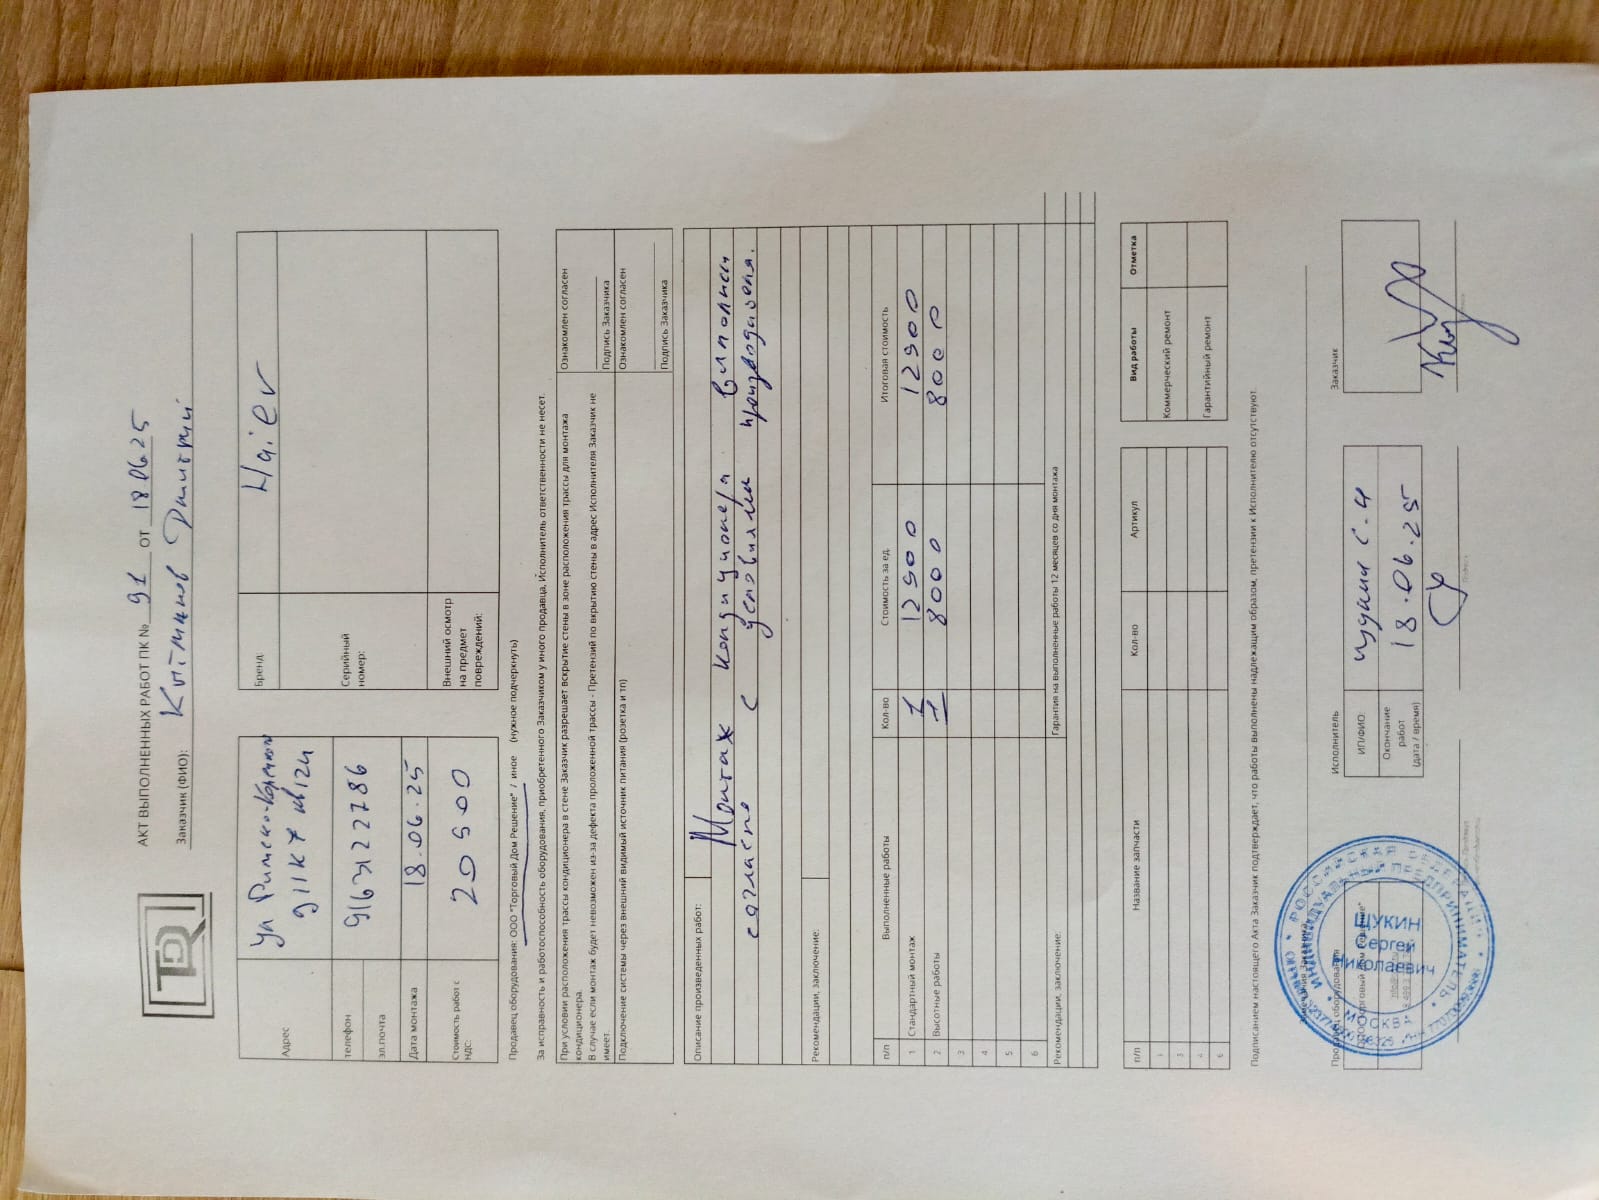 АКТ ВЫПОЛНЕННЫХ РАБОТ ПК № 91 ОТ 18 06.25
Заказчик (ФИО): Дмитрий
Адрес ул Римско-Корсакова
д 11 к 7 кв 124
телефон
эл.почта
Дата монтажа 18.06.25
Стоимость работ с НДС: 20 900
Бренд: Haier
Серийный номер:
Внешний осмотр на предмет повреждений:
Продавец оборудования: ООО "Торговый Дом Решение" / иное (нужное подчеркнуть)
За исправность и работоспособность оборудования, приобретенного Заказчиком у иного продавца, Исполнитель ответственности не несет.
При условии расположения трассы кондиционера в стене Заказчик разрешает вскрытие стены в зоне расположения трассы для монтажа
кондиционера.
В случае если монтаж будет невозможен из-за дефекта проложенной трассы - Претензий по вскрытию стены в адрес Исполнителя Заказчик не
имеет.
Ознакомлен согласен
Подпись Заказчика
Подключение системы через внешний видимый источник питания (розетка и тп)
Ознакомлен согласен
Подпись Заказчика
Описание произведенных работ:
Монтаж кондиционера выполнен
согласно с условиями производителя.
Рекомендации, заключение:
п/п Выполненные работы Кол-во Стоимость за ед. Итоговая стоимость
1 Стандартный монтаж 1 12900 12900
2 Высотные работы 1 8000 8000
3
4
5
6
Рекомендации, заключение: Гарантия на выполненные работы 12 месяцев со дня монтажа
п/п Название запчасти Кол-во Артикул
1
3
4
6
Вид работы Отметка
Коммерческий ремонт
Гарантийный ремонт
Подписанием настоящего Акта Заказчик подтверждает, что работы выполнены надлежащим образом, претензии к Исполнителю отсутствуют.
Исполнитель
ИП/ФИО:
Окончание работ (дата / время) 18.06.25
Заказчик
РОССИЙСКАЯ ФЕДЕРАЦИЯ
ИНДИВИДУАЛЬНЫЙ ПРЕДПРИНИМАТЕЛЬ
ЩУКИН
Сергей
Николаевич
МОСКВА